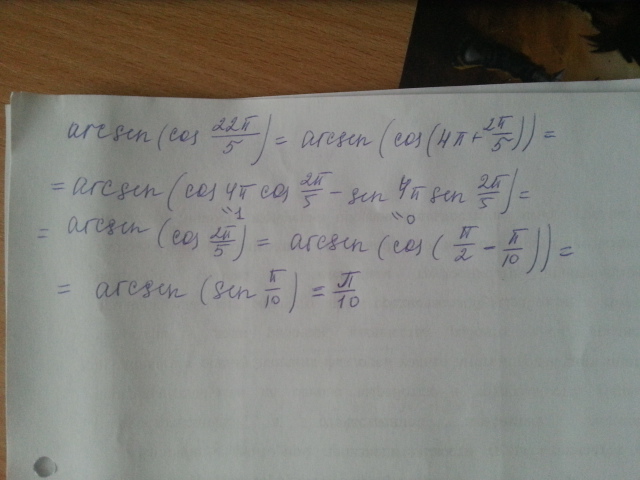 arcsen (cos 22π/5) = arcsen (cos(4π + 2π/5)) =
= arcsen (cos 4π cos 2π/5 - sen 4π sen 2π/5) =
"1 "0
= arcsen (cos 2π/5) = arcsen (cos (π/2 - π/10)) =
= arcsen (sen π/10) = π/10